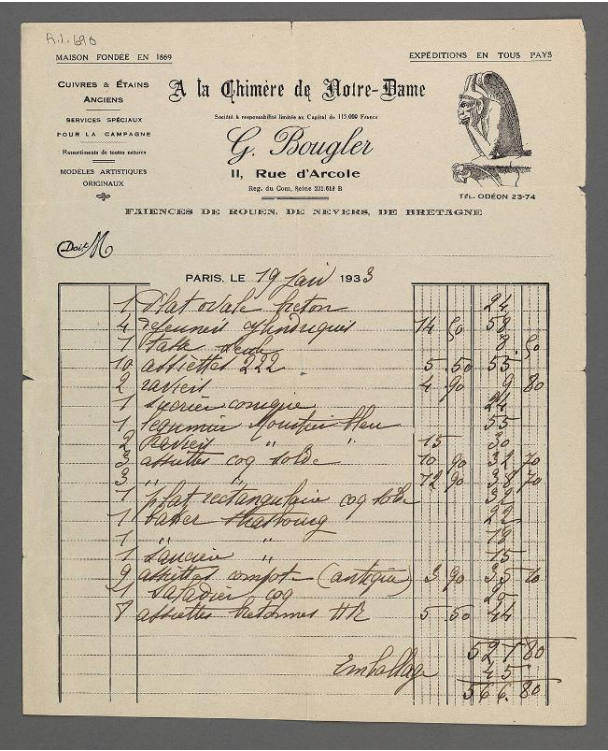 R.I. 690
MAISON FONDÉE EN 1869
EXPÉDITIONS EN TOUS PAYS
CUIVRES & ÉTAINS
ANCIENS
SERVICES SPÉCIAUX
POUR LA CAMPAGNE
Rassortiments de toutes natures
MODÈLES ARTISTIQUES
ORIGINAUX
A la Chimère de Notre-Dame
Société à responsabilité limitée au Capital de 115.000 Francs
G. Bougler
11, Rue d'Arcole
Reg. du Com. Seine 231.618 B
TÉL. ODÉON 23-74
FAIENCES DE ROUEN, DE NEVERS, DE BRETAGNE
Doit M
PARIS, LE 19 1933
1 Plat ovale breton 24
4 14 50 58
1 tasse seule 8.50
10 assiettes 222 5.50 55
2 raviers 4.90 9 80
1 Sucrier conique 24
1 Moustier bleu 55
2 Raviers " " 15 30
3 assiettes coq solde 10 90 32 70
3 " " 12 90 38 70
1 plat rectangulaire coq 32
1 Strasbourg 22
1 " " 19
1 Saucière " 15
9 assiettes compote (antique) 3.90 35 10
1 Saladier coq 25
8 assiettes bretonnes HR 5.50 44
527 80
Emballage 45
566.80